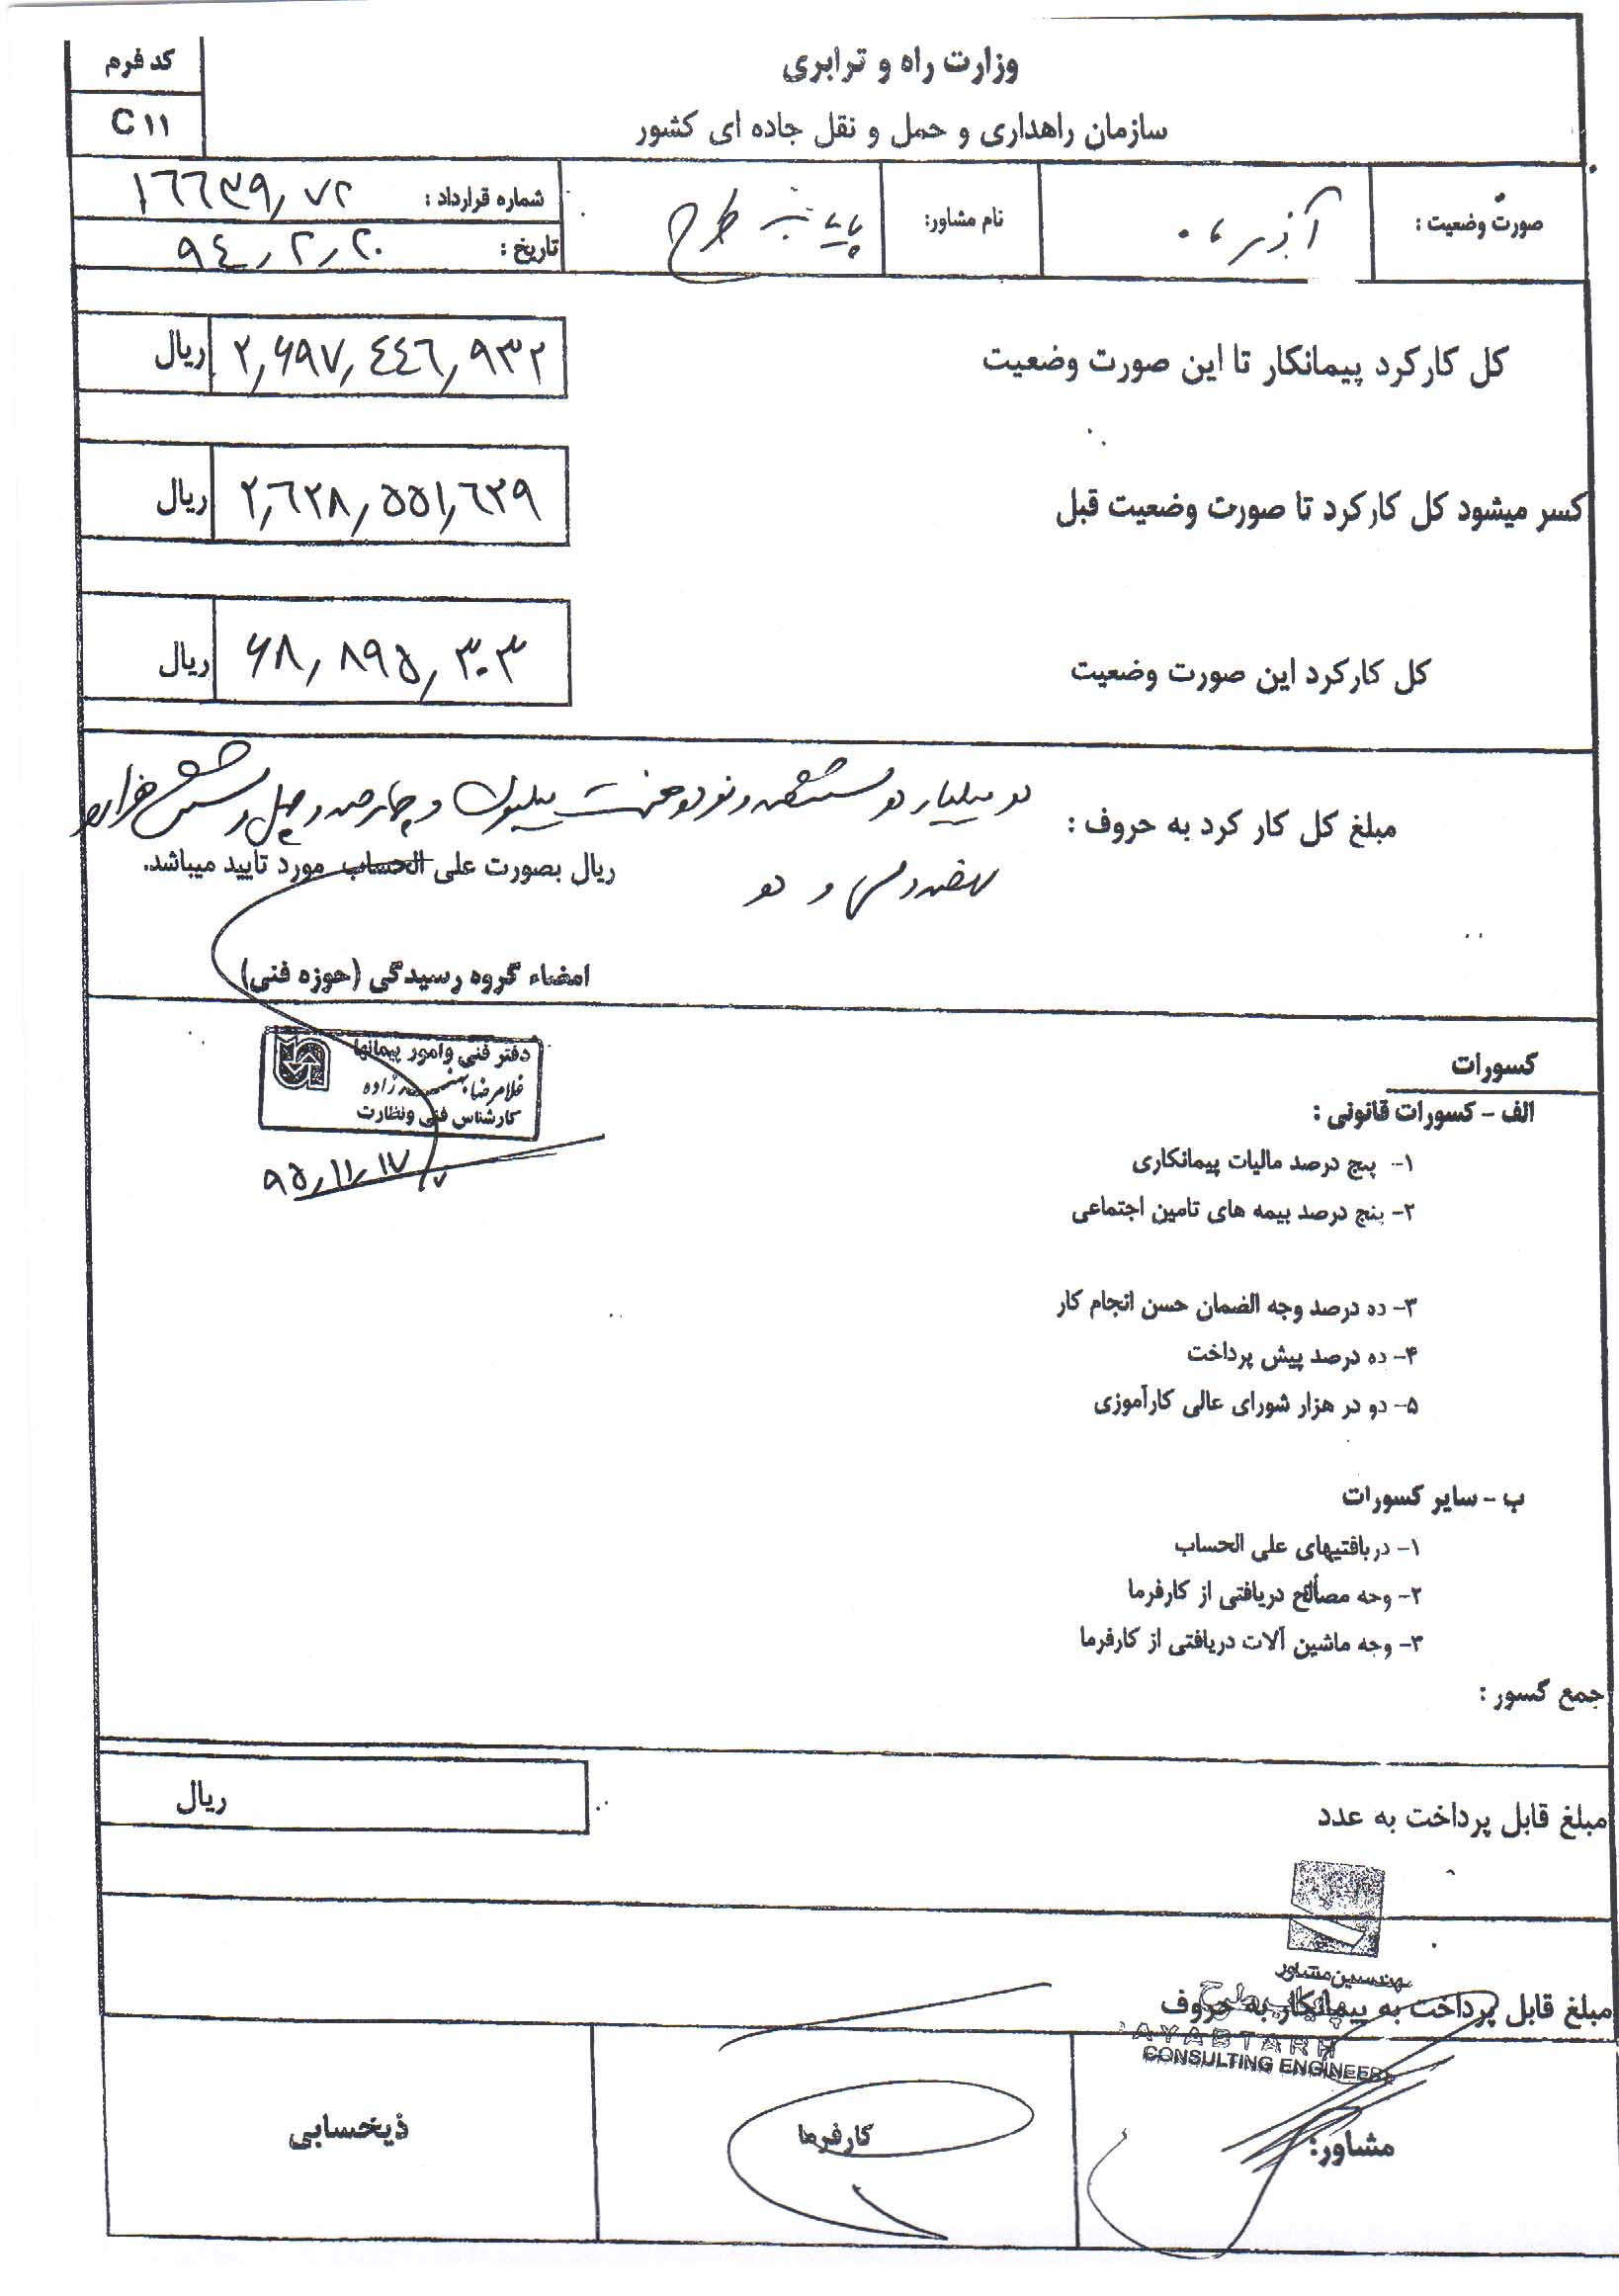 کد فرم
C ۱۱
وزارت راه و ترابری
سازمان راهداری و حمل و نقل جاده ای کشور
صورت وضعیت :
نام مشاور:
طرح
شماره قرارداد : ۱۶۶۳۹,۷۲
تاریخ : ۹۴,۲,۲۰
کل کارکرد پیمانکار تا این صورت وضعیت ۲,۶۹۷,۴۴۶,۹۳۲ ریال
کسر میشود کل کارکرد تا صورت وضعیت قبل ۲,۶۲۸,۵۵۱,۶۲۹ ریال
کل کارکرد این صورت وضعیت ۶۸,۸۹۵,۳۰۳ ریال
مبلغ کل کار کرد به حروف : دو میلیارد و ششصد و نود و هفت میلیون و چهارصد و چهل و شش هزار و
نهصد و سی و دو ریال بصورت علی الحساب مورد تایید میباشد.
امضاء گروه رسیدگی (حوزه فنی)
دفتر فنی وامور پیمانها
غلامرضا
کارشناس فنی ونظارت
۹۵,۱۱,۱۷
کسورات
الف - کسورات قانونی :
۱- پنج درصد مالیات پیمانکاری
۲- پنج درصد بیمه های تامین اجتماعی
۳- ده درصد وجه الضمان حسن انجام کار
۴- ده درصد پیش پرداخت
۵- دو در هزار شورای عالی کارآموزی
ب - سایر کسورات
۱- دریافتیهای علی الحساب
۲- وجه مصالح دریافتی از کارفرما
۳- وجه ماشین آلات دریافتی از کارفرما
جمع کسور :
مبلغ قابل پرداخت به عدد ریال
مهندسین مشاور
مبلغ قابل پرداخت به پیمانکار به حروف
AYABTARH
CONSULTING ENGINEERS
مشاور:
کارفرما
ذیحسابی